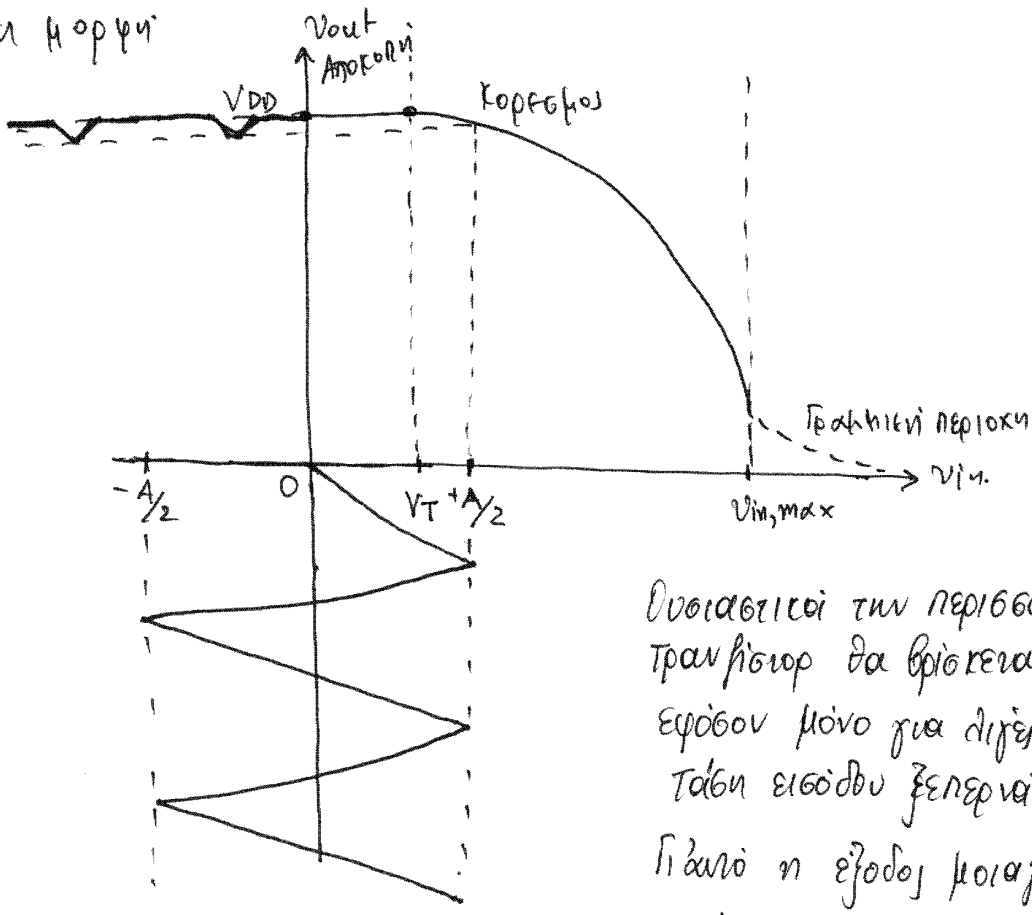 μορφή
Vout
Αποκοπή
VDD
Κορεσμος
Γραμμική περιοχη
-A/2
0
VT
+A/2
Vin,max
Vin.
Ουσιαστικά την περισσό
τρανζίστορ θα βρίσκετα
εφόσον μόνο για λιγέ
τάση εισόδου ξεπερνά
Γι'αυτό η έξοδος μοιάζ